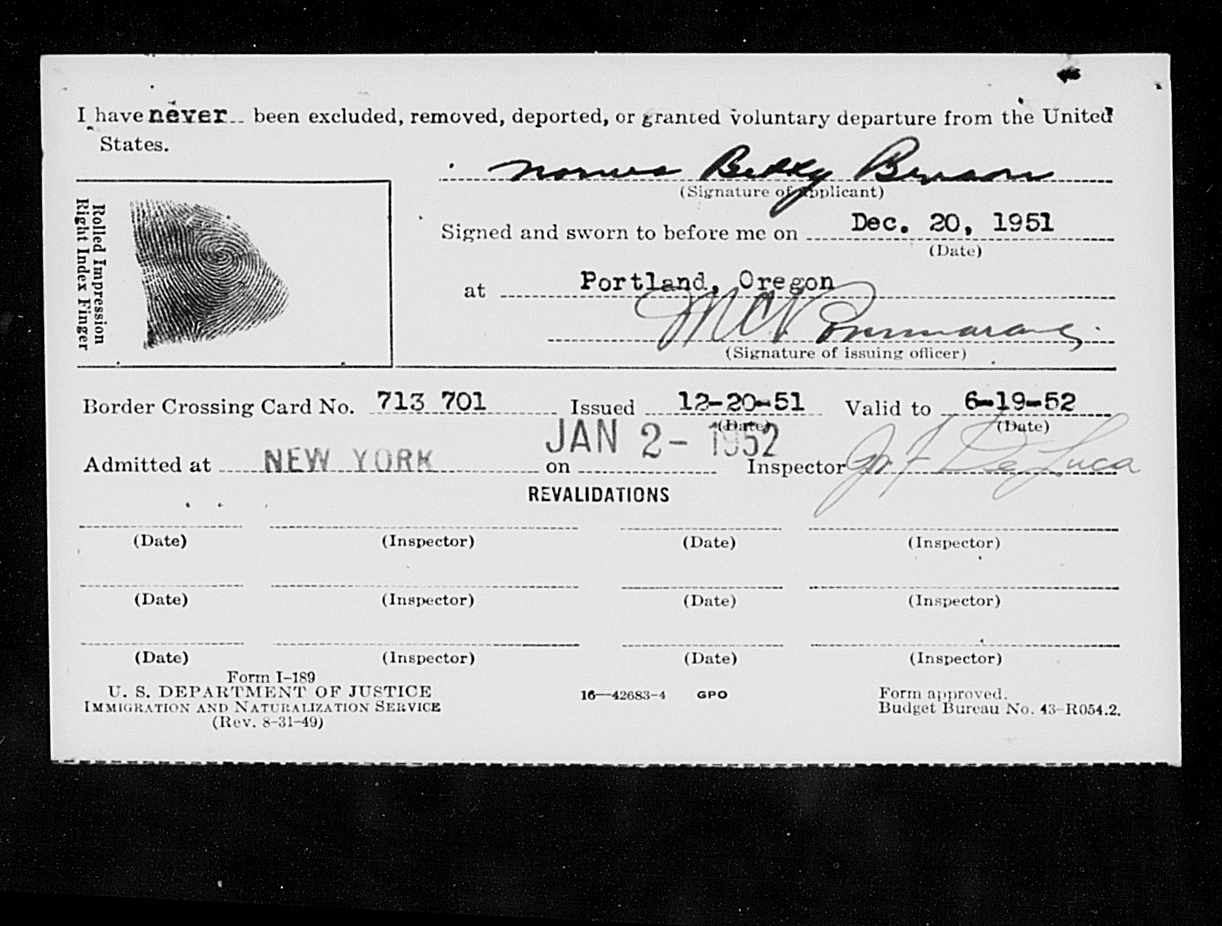 I have never been excluded, removed, deported, or granted voluntary departure from the United
States.
Benson
(Signature of applicant)
Rolled Impression
Right Index Finger
Signed and sworn to before me on Dec. 20, 1951
(Date)
at Portland, Oregon
(Signature of issuing officer)
Border Crossing Card No. 713 701 Issued 12-20-51 Valid to 6-19-52
(Date) (Date)
Admitted at NEW YORK on JAN 2- 1952 Inspector De Luca
REVALIDATIONS
(Date) (Inspector) (Date) (Inspector)
(Date) (Inspector) (Date) (Inspector)
(Date) (Inspector) (Date) (Inspector)
Form I-189
U. S. DEPARTMENT OF JUSTICE 16—42683-4 GPO Form approved.
IMMIGRATION AND NATURALIZATION SERVICE Budget Bureau No. 43-R054.2.
(Rev. 8-31-49)